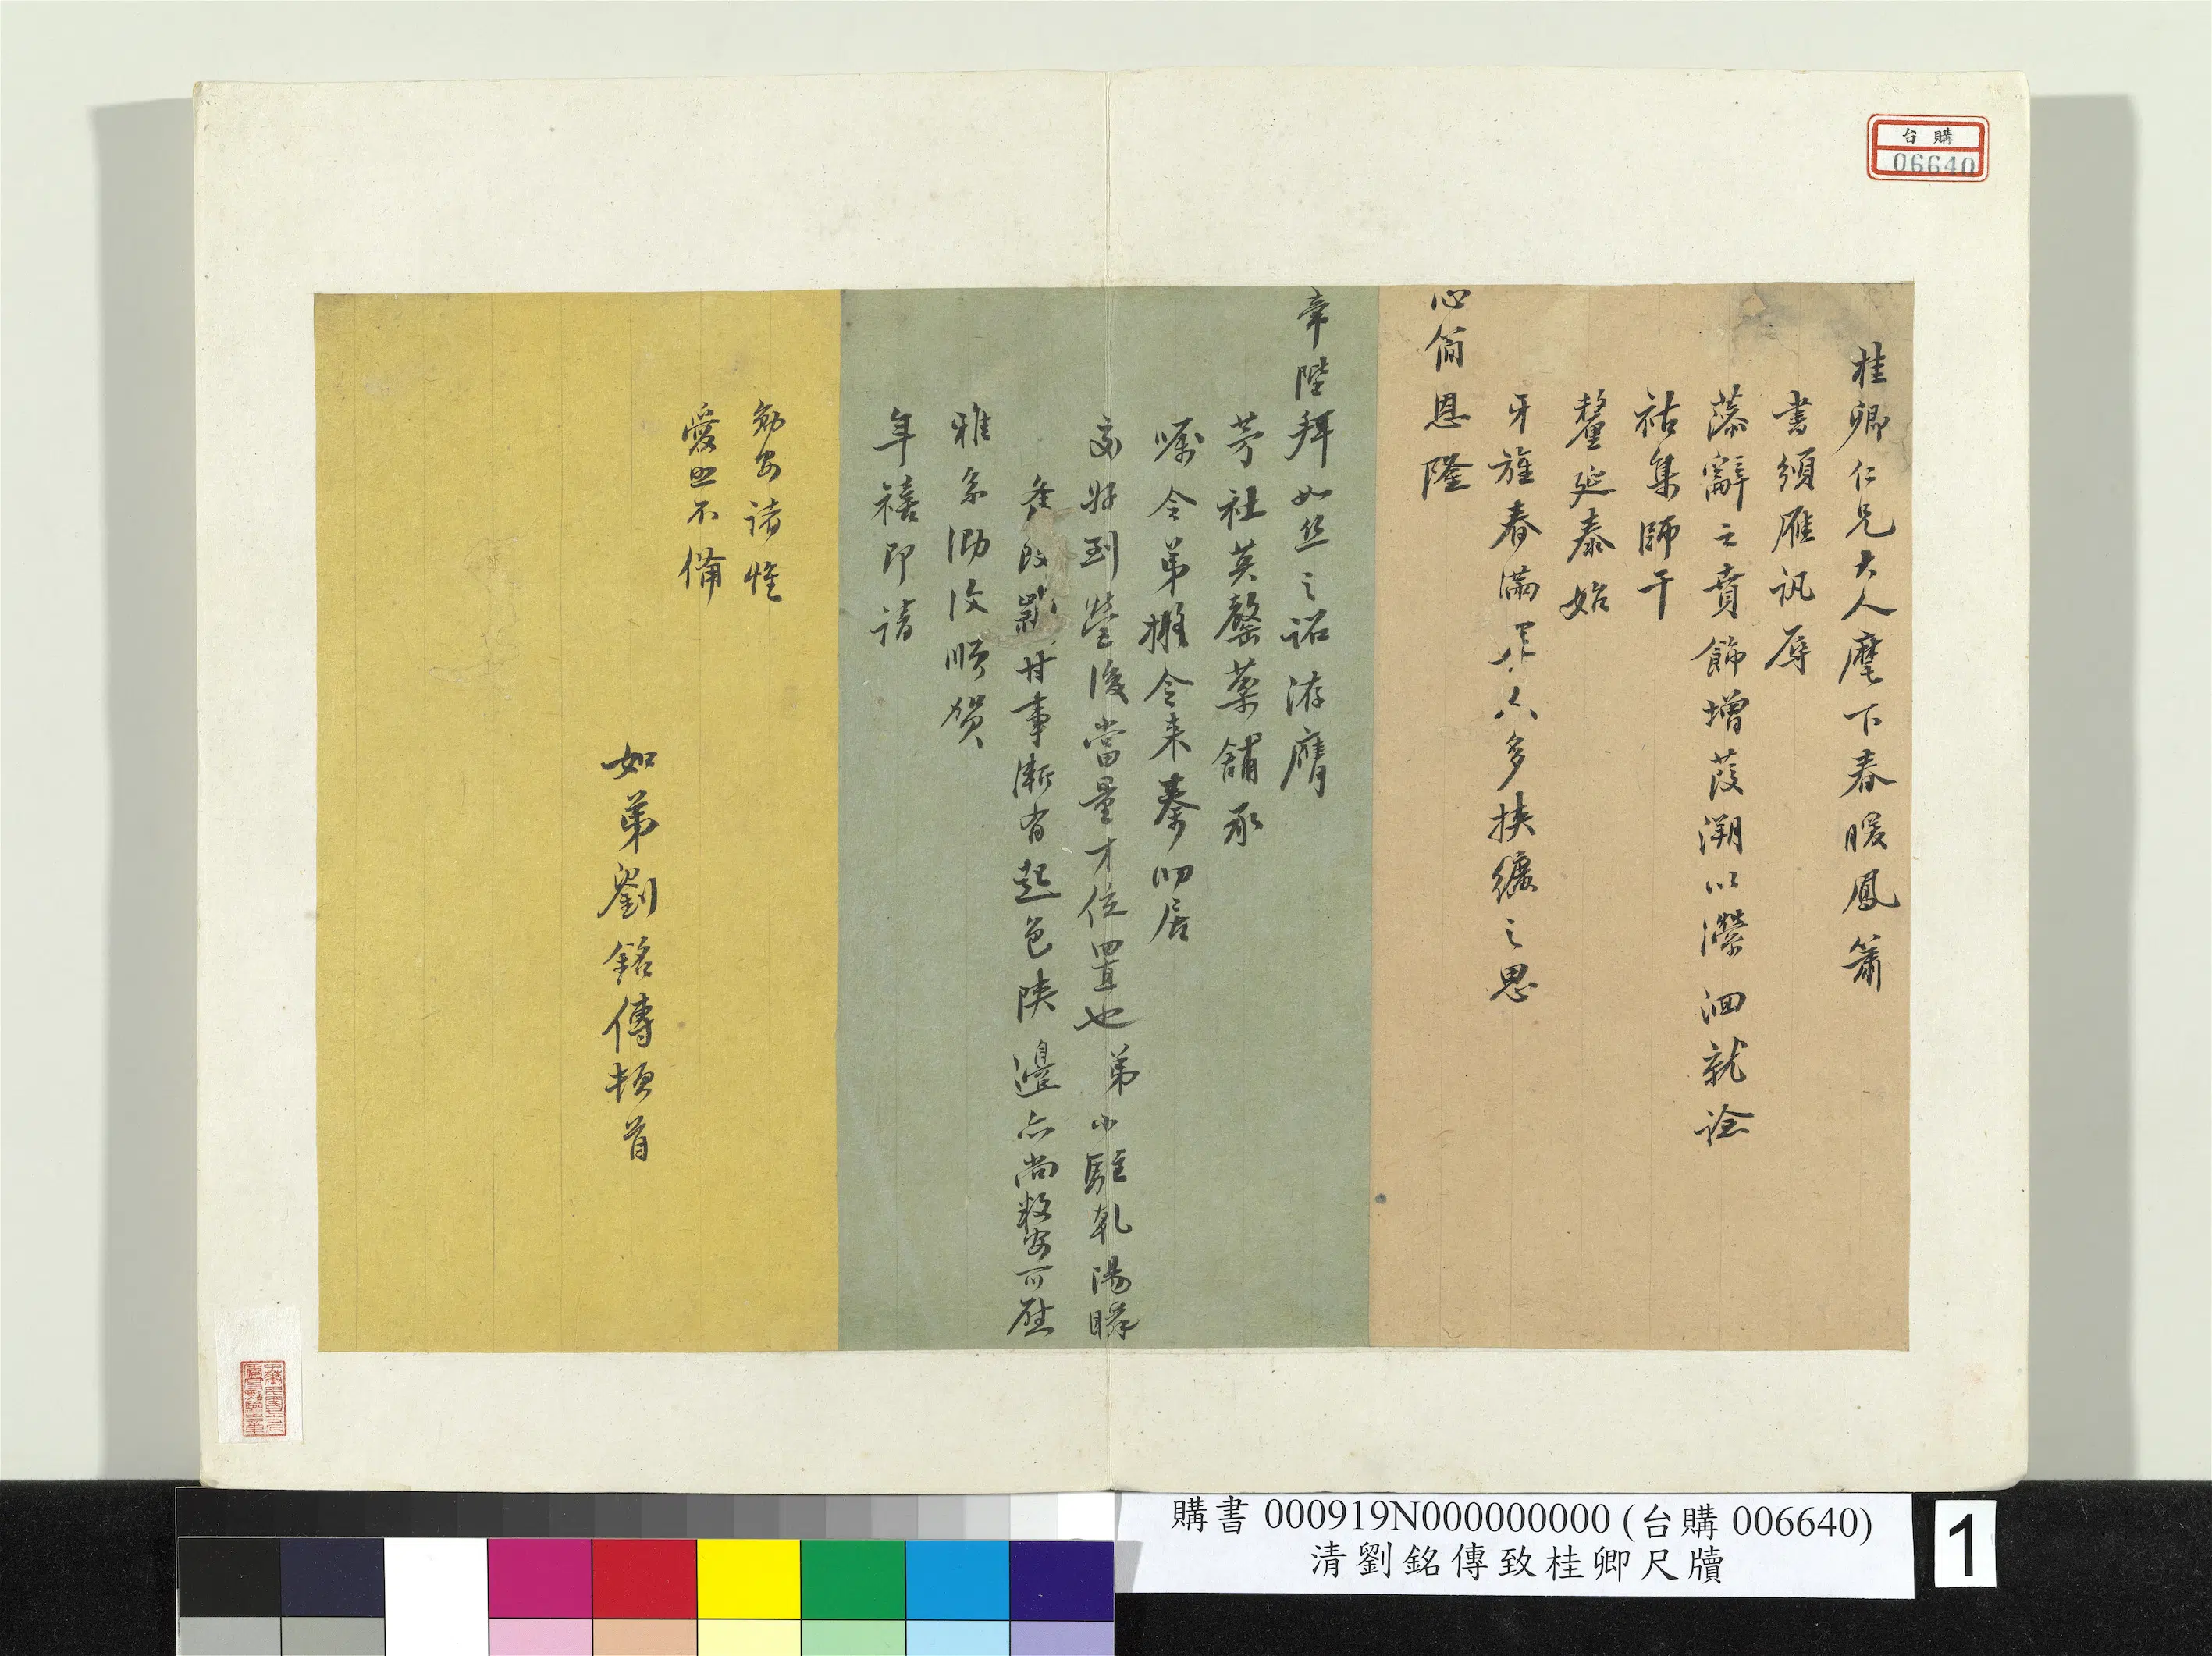 台購
06640
桂卿仁兄大人麾下春暖鳳簫
書頒雁訊辱
藻辭之賁飾增葭溯以瀠洄就諗
祜集師干
釐延泰始
牙旌春滿 人多挾纊之思
心簡恩隆
帝陛拜如絲之詔洊膺
芳社英馨藥舖承
囑令弟 令來秦叨居
交好到營後當量才位置也弟小駐乾陽瞬
改歲甘事漸有起色陝邊亦尚敉安可慰
雅系泐復順賀
年禧即請
勛安諸惟
愛照不備
如弟劉銘傳頓首
購書 000919N000000000 (台購 006640)
清劉銘傳致桂卿尺牘
1